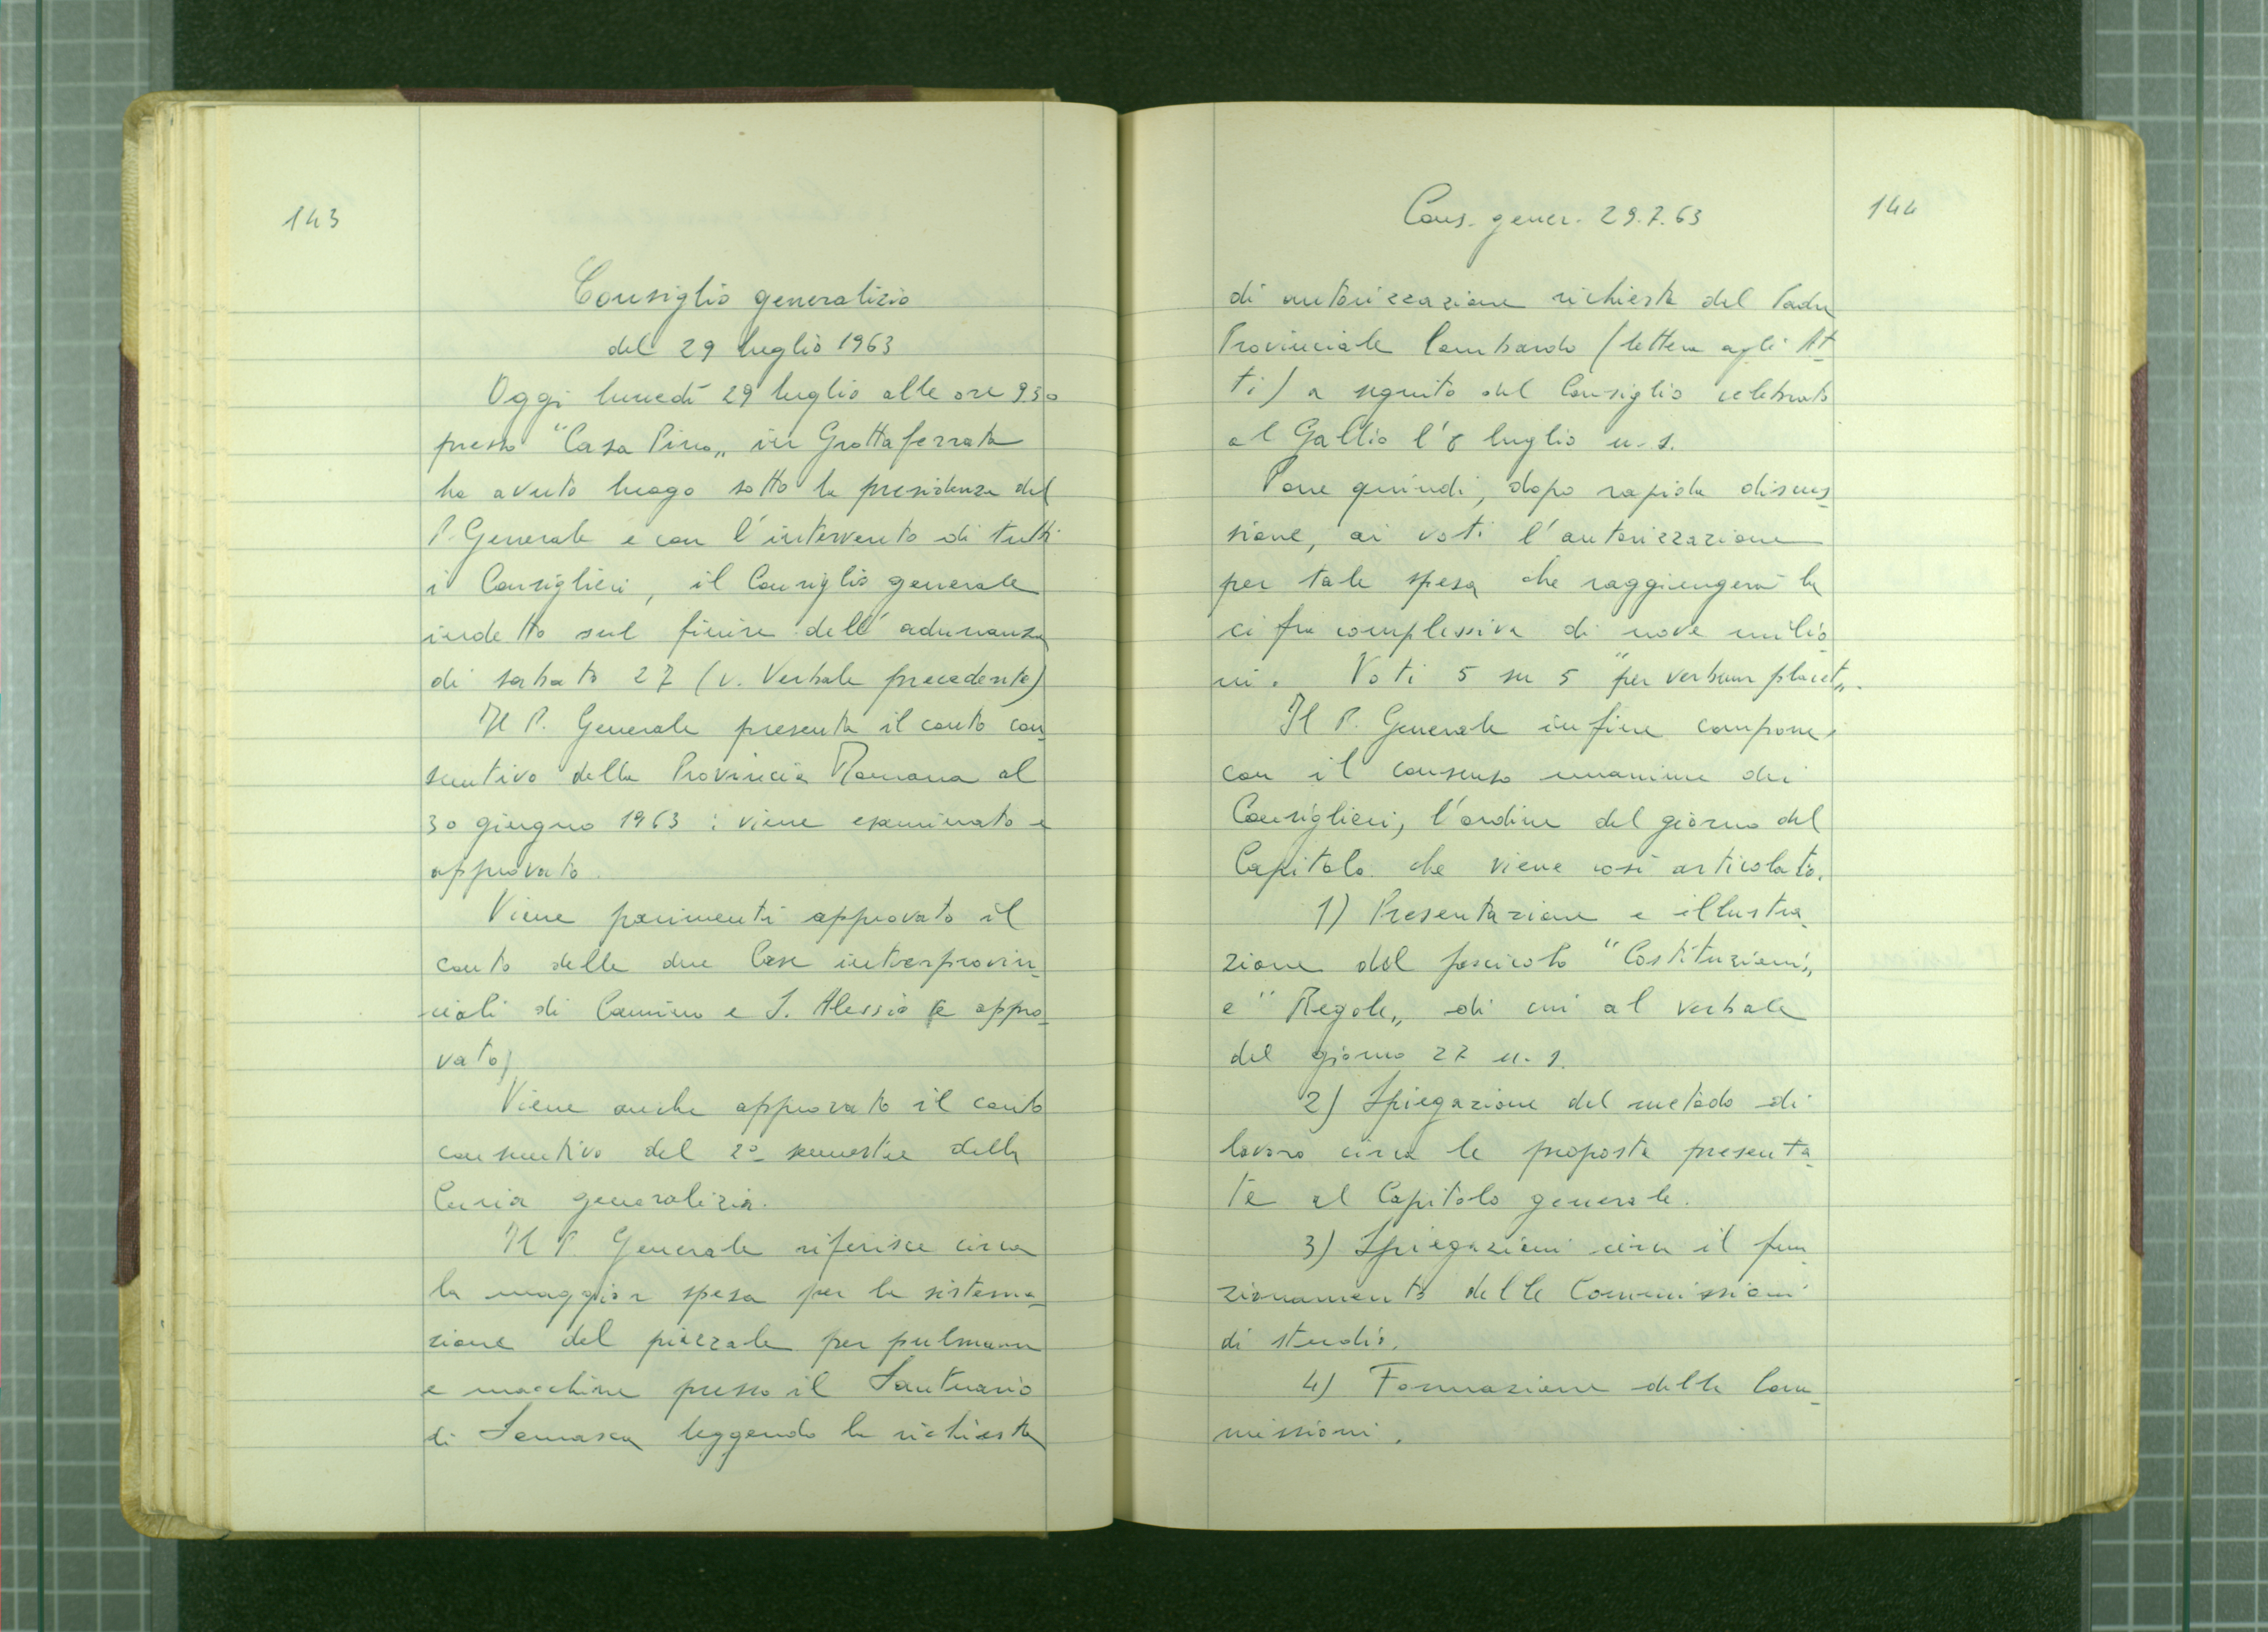 143
Consiglio generalizio
del 29 luglio 1963
Oggi lunedì 29 luglio alle ore 9.30
presso "Casa Pino„ in Grottaferrata
ha avuto luogo sotto la presidenza del
P. Generale e con l'intervento di tutti
i Consiglieri, il Consiglio generale
indetto sul finire dell'adunanza
di sabato 27 (v. Verbale precedente)
Il P. Generale presenta il conto con_
suntivo della Provincia Romana al
30 giugno 1963 : viene esaminato e
approvato.
Viene parimenti approvato il
conto delle due Case interprovin_
ciali di Camino e S. Alessio (e appro_
vato)
Viene anche approvato il conto
consuntivo del 2° semestre della
Curia generalizia.
Il P. Generale riferisce circa
la maggior spesa per la sistema_
zione del piazzale per pulmann
e macchine presso il Santuario
di Somasca leggendo la richiesta
Cons. gener. 29.7.63
144
di autorizzazione richiesta del Padre
Provinciale Lombardo (lettera agli At_
ti) a seguito del Consiglio celebrato
al Gallio l'8 luglio u. s.
Pone quindi, dopo rapida discus_
sione, ai voti l'autorizzazione
per tale spesa che raggiungerà la
cifra complessiva di nove milio_
ni. Voti 5 su 5 "per verbum placet„.
Il P. Generale infine compone,
con il consenso unanime dei
Consiglieri, l'ordine del giorno del
Capitolo che viene così articolato.
1) Presentazione e illustra_
zione del fascicolo "Costituzioni„
e "Regole„ di cui al verbale
del giorno 27 u. s.
2) Spiegazione del metodo di
lavoro circa le proposte presenta_
te al Capitolo generale.
3) Spiegazioni circa il fun_
zionamento delle Commissioni
di studio.
4) Formazione delle Com_
missioni.